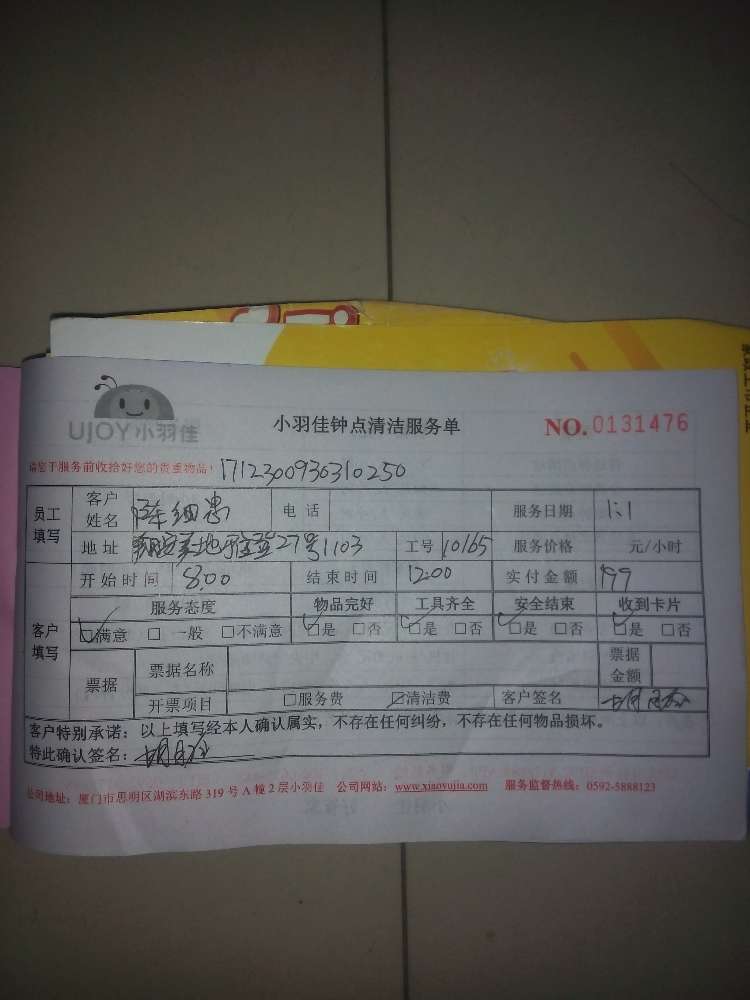 UJOY小羽佳 小羽佳钟点清洁服务单 NO.0131476
请您于服务前收拾好您的贵重物品! 1712300930310250
员工填写 客户姓名 电话 服务日期 1.1
地址 27号1103 工号 10165 服务价格 元/小时
客户填写 开始时间 8.00 结束时间 12.00 实付金额 199
服务态度 物品完好 工具齐全 安全结束 收到卡片
☑满意 □一般 □不满意 ☑是 □否 ☑是 □否 ☑是 □否 ☑是 □否
票据 票据名称 票据金额
开票项目 □服务费 ☑清洁费 客户签名
客户特别承诺:以上填写经本人确认属实,不存在任何纠纷,不存在任何物品损坏。
特此确认签名:
公司地址:厦门市思明区湖滨东路319号A幢2层小羽佳 公司网站:www.xiaoyujia.com 服务监督热线:0592-5888123